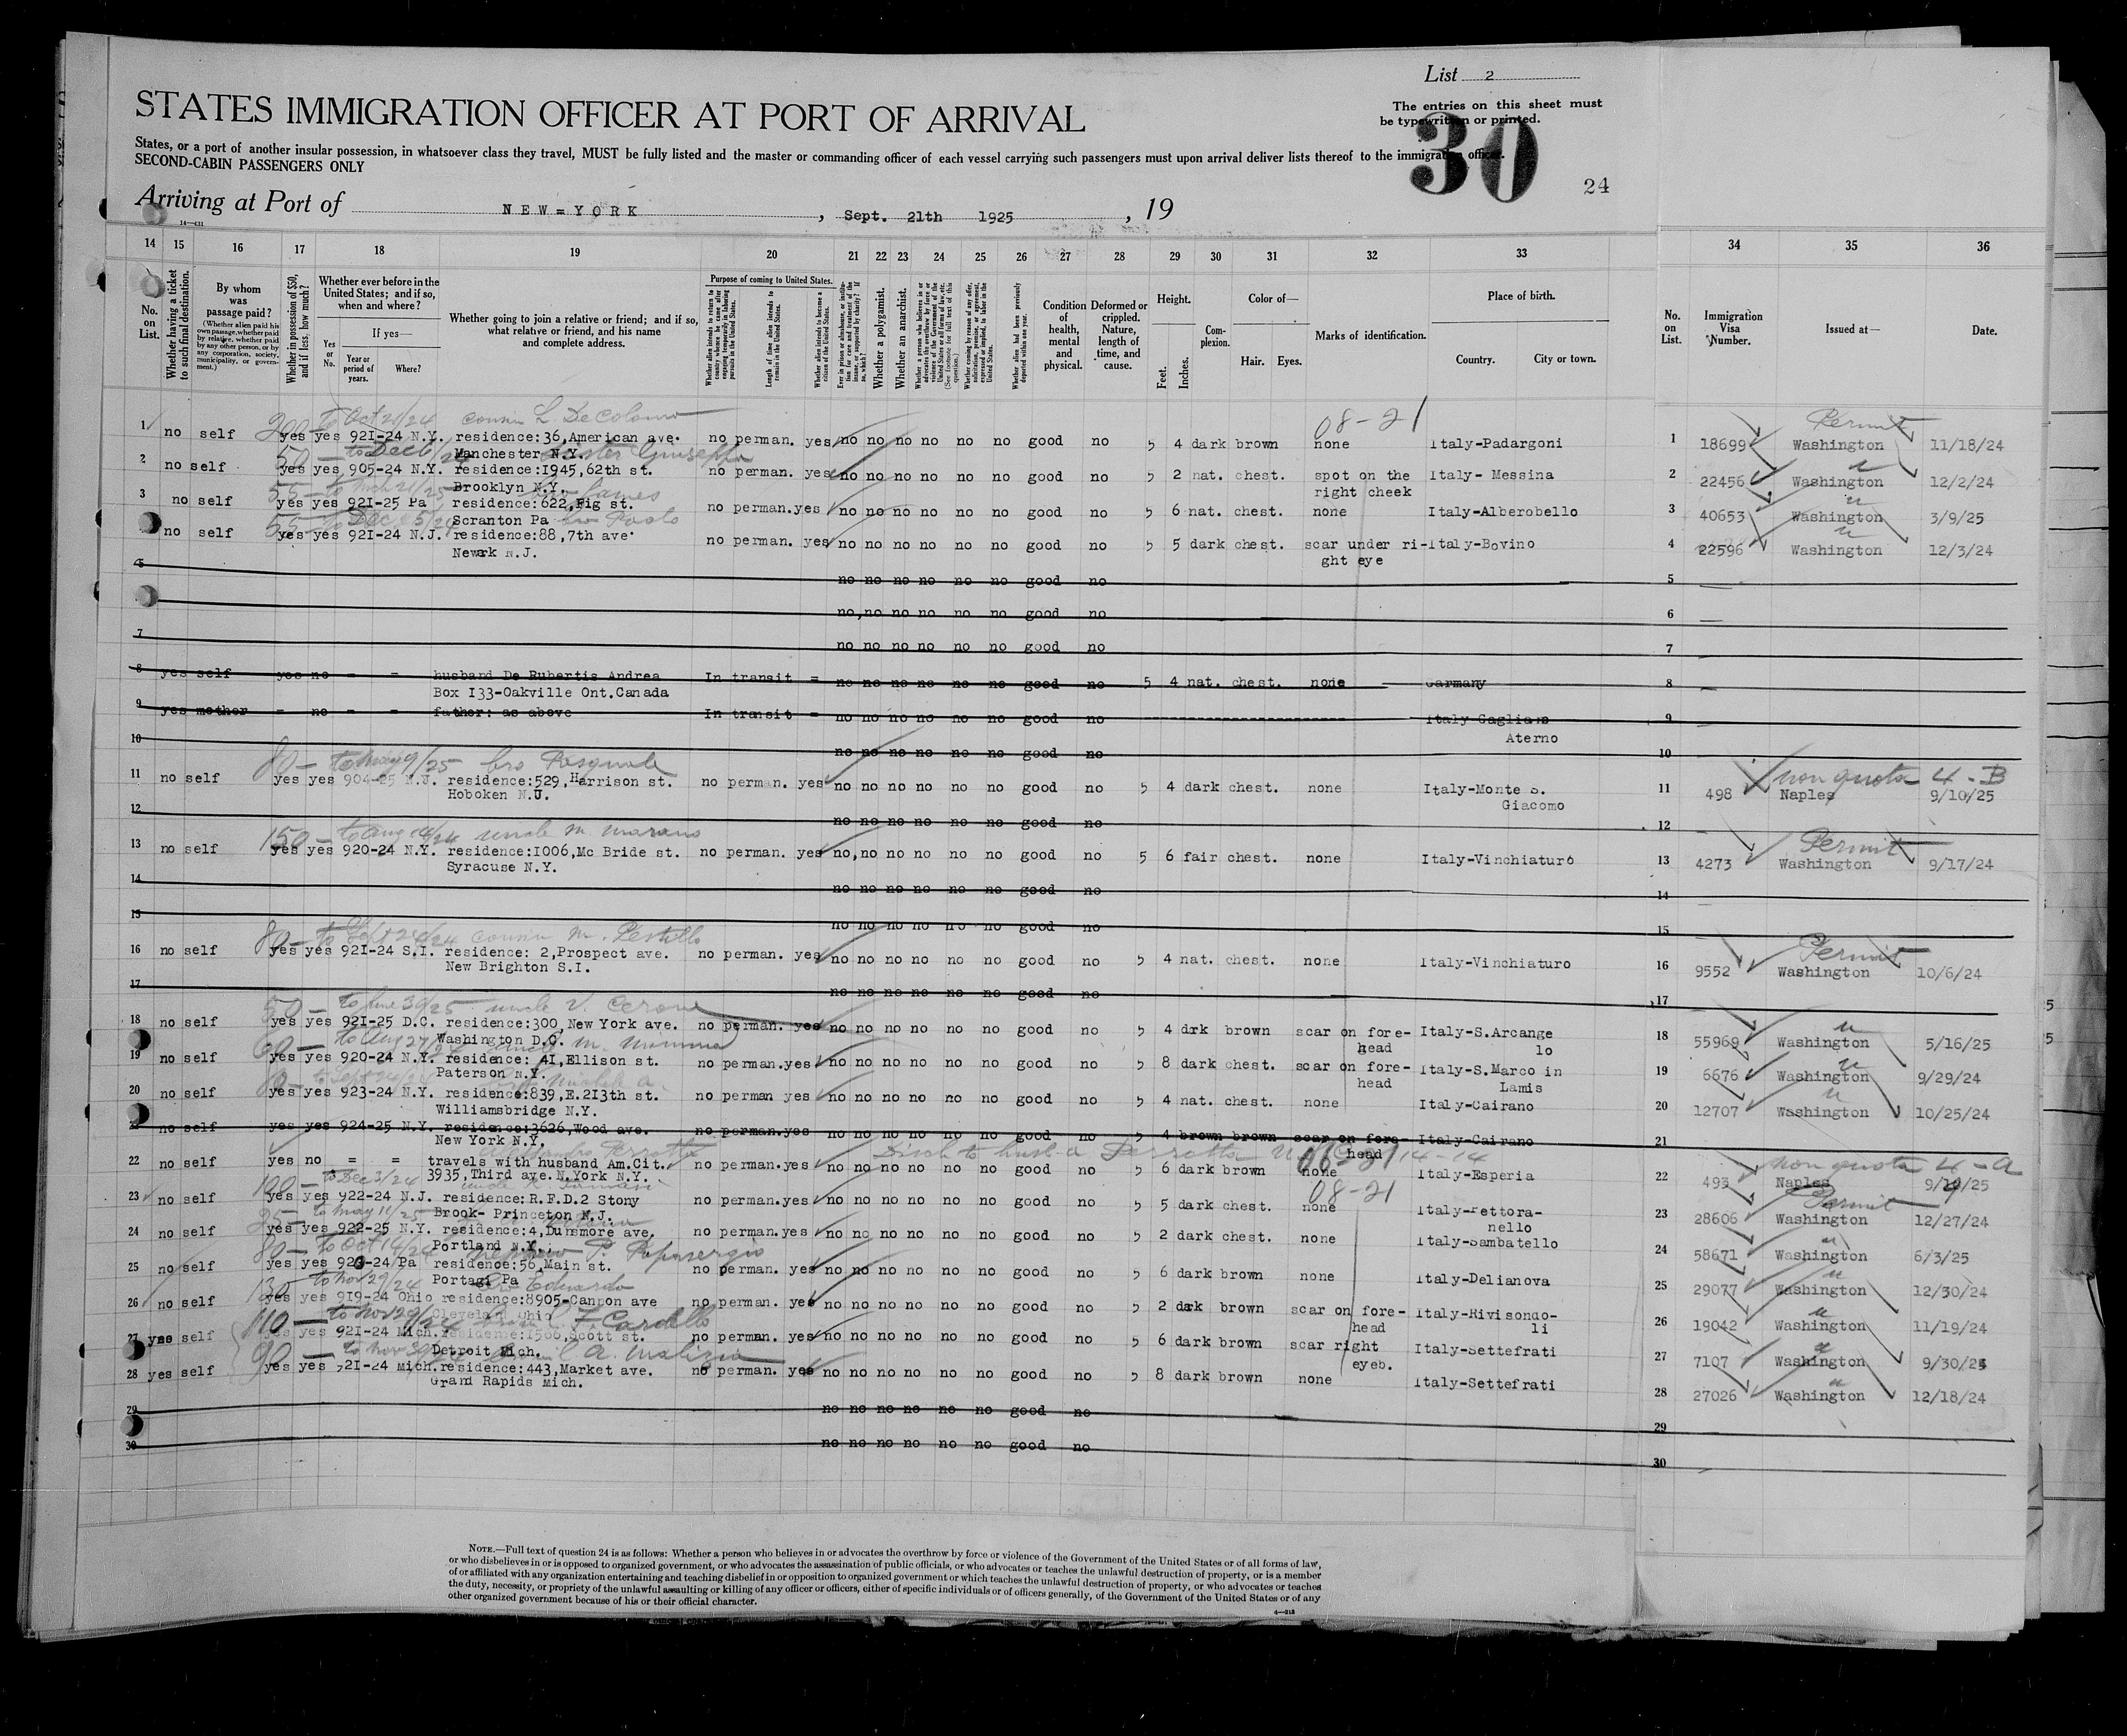 List 2
STATES IMMIGRATION OFFICER AT PORT OF ARRIVAL
The entries on this sheet must
be typewritten or printed.
States, or a port of another insular possession, in whatsoever class they travel, MUST be fully listed and the master or commanding officer of each vessel carrying such passengers must upon arrival deliver lists thereof to the immigration officer.
SECOND-CABIN PASSENGERS ONLY
30
24
Arriving at Port of NEW=YORK, Sept. 21th 1925, 19
14 15 16 17 18 19 20 21 22 23 24 25 26 27 28 29 30 31 32 33 34 35 36
No. on List.
Whether having a ticket to such final destination.
By whom was passage paid?
(Whether alien paid his own passage, whether paid by relative, whether paid by any other person, or by any corporation, society, municipality, or government.)
Whether in possession of $50, and if less, how much?
Whether ever before in the United States; and if so, when and where?
If yes—
Yes or No.
Year or period of years.
Where?
Whether going to join a relative or friend; and if so, what relative or friend, and his name and complete address.
Purpose of coming to United States.
Whether alien intends to return to country whence he came after engaging temporarily in laboring pursuits in the United States.
Length of time alien intends to remain in the United States.
Whether alien intends to become a citizen of the United States.
Whether a polygamist.
Whether an anarchist.
Whether alien had been previously deported within one year.
Condition of health, mental and physical.
Deformed or crippled. Nature, length of time, and cause.
Height.
Feet. Inches.
Complexion.
Color of—
Hair. Eyes.
Marks of identification.
Place of birth.
Country. City or town.
No. on List.
Immigration Visa Number.
Issued at—
Date.
200 to Oct 21/24 cousin L. DeColomo 08-21 Permit
1 no self yes yes 921-24 N.Y. residence:36,American ave. no perman. yes no no no no no no good no 5 4 dark brown none Italy-Padargoni 1 18699 Washington 11/18/24
Manchester N.Y. sister Giuseppa
2 no self yes yes 905-24 N.Y. residence:1945,62th st. no perman. yes no no no no no no good no 5 2 nat. chest. spot on the Italy- Messina 2 22456 Washington 12/2/24
Brooklyn N.Y. right cheek
3 no self yes yes 921-25 Pa residence:622,Fig st. no perman.yes no no no no no no good no 5 6 nat. chest. none Italy-Alberobello 3 40653 Washington 3/9/25
Scranton Pa
no self yes yes 921-24 N.J. residence:88,7th ave. no perman. yes no no no no no no good no 5 5 dark chest. scar under ri- Italy-Bovino 4 22596 Washington 12/3/24
Newark N.J. ght eye
5 no no no no no no good no 5
no no no no no no good no 6
7 no no no no no no good no 7
8 yes self yes no = = husband De Rubertis Andrea In transit = no no no no no no good no 5 4 nat. chest. none Germany 8
Box 133-Oakville Ont.Canada
9 yes mother = no = = father: as above In transit = no no no no no no good no Italy-Gagliano 9
Aterno
10 no no no no no no good no 10
80 — to May 9/25 bro Pasquale non quota 4-B
11 no self yes yes 904-25 N.J. residence:529,Harrison st. no perman. yes no no no no no no good no 5 4 dark chest. none Italy-Monte S. 11 498 Naples 9/10/25
Hoboken N.J. Giacomo
12 no no no no no no good no 12
150 — to Aug 14/24 uncle M. Marano Permit
13 no self yes yes 920-24 N.Y. residence:1006,Mc Bride st. no perman. yes no,no no no no no good no 5 6 fair chest. none Italy-Vinchiaturo 13 4273 Washington 9/17/24
Syracuse N.Y.
14 no no no no no no good no 14
15 no no no no no no good no 15
80 — cousin M. Pestillo Permit
16 no self yes yes 921-24 S.I. residence: 2,Prospect ave. no perman. yes no no no no no no good no 5 4 nat. chest. none Italy-Vinchiaturo 16 9552 Washington 10/6/24
New Brighton S.I.
17 no no no no no no good no 17
50 — to June 30/25 uncle V. Cerone
18 no self yes yes 921-25 D.C. residence:300,New York ave. no perman. yes no no no no no no good no 5 4 drk brown scar on fore- Italy-S.Arcange 18 55969 Washington 5/16/25
Washington D.C. head lo
19 no self yes yes 920-24 N.Y. residence: 41,Ellison st. no perman.yes no no no no no no good no 5 8 dark chest. scar on fore- Italy-S.Marco in 19 6676 Washington 9/29/24
Paterson N.Y. head Lamis
20 no self yes yes 923-24 N.Y. residence:839,E.213th st. no perman yes no no no no no no good no 5 4 nat. chest. none Italy-Cairano 20 12707 Washington 10/25/24
Williamsbridge N.Y.
no self yes yes 924-25 N.Y. residence:3626,Wood ave. no perman.yes no no no no no no good no 5 4 brown brown scar on fore- Italy-Cairano 21
New York N.Y. head
non quota 4-a
22 no self yes no = = travels with husband Am.Cit. no perman.yes no no no no no no good no 5 6 dark brown none Italy-Esperia 22 493 Naples 9/10/25
3935,Third ave.N.York N.Y.
100 — to Dec 3/24 08-21 Permit
23 no self yes yes 922-24 N.J. residence:R.F.D.2 Stony no perman.yes no no no no no no good no 5 5 dark chest. none Italy-Pettora- 23 28606 Washington 12/27/24
Brook- Princeton N.J. nello
24 no self yes yes 922-25 N.Y. residence:4,Dunsmore ave. no perman.yes no no no no no no good no 5 2 dark chest. none Italy-Sambatello 24 58671 Washington 6/3/25
Portland N.Y.
25 no self yes yes 923-24/Pa residence:56,Main st. no perman. yes no no no no no no good no 5 6 dark brown none Italy-Delianova 25 29077 Washington 12/30/24
Portage Pa
130 to Nov 29/24 bro Eduardo
26 no self yes yes 919-24 Ohio residence:8905-Cannon ave no perman. yes no no no no no no good no 5 2 dark brown scar on fore- Italy-Rivisondo- 26 19042 Washington 11/19/24
Cleveland Ohio head li
110 — to Nov 29/24 F. Cardello
27 yes self yes yes 921-24 Mich. residence:1506,Scott st. no perman. yes no no no no no no good no 5 6 dark brown scar right Italy-Settefrati 27 7107 Washington 9/30/24
Detroit Mich. eyeb.
90 — to Nov 30 A. Malizia
28 yes self yes yes 921-24 Mich. residence:443,Market ave. no perman. yes no no no no no no good no 5 8 dark brown none Italy-Settefrati 28 27026 Washington 12/18/24
Grand Rapids Mich.
29 no no no no no no good no 29
30 no no no no no no good no 30
NOTE.—Full text of question 24 is as follows: Whether a person who believes in or advocates the overthrow by force or violence of the Government of the United States or of all forms of law,
or who disbelieves in or is opposed to organized government, or who advocates the assassination of public officials, or who advocates or teaches the unlawful destruction of property, or is a member
of or affiliated with any organization entertaining and teaching disbelief in or opposition to organized government or which teaches the unlawful destruction of property, or who advocates or teaches
the duty, necessity, or propriety of the unlawful assaulting or killing of any officer or officers, either of specific individuals or of officers generally, of the Government of the United States or of any
other organized government because of his or their official character.